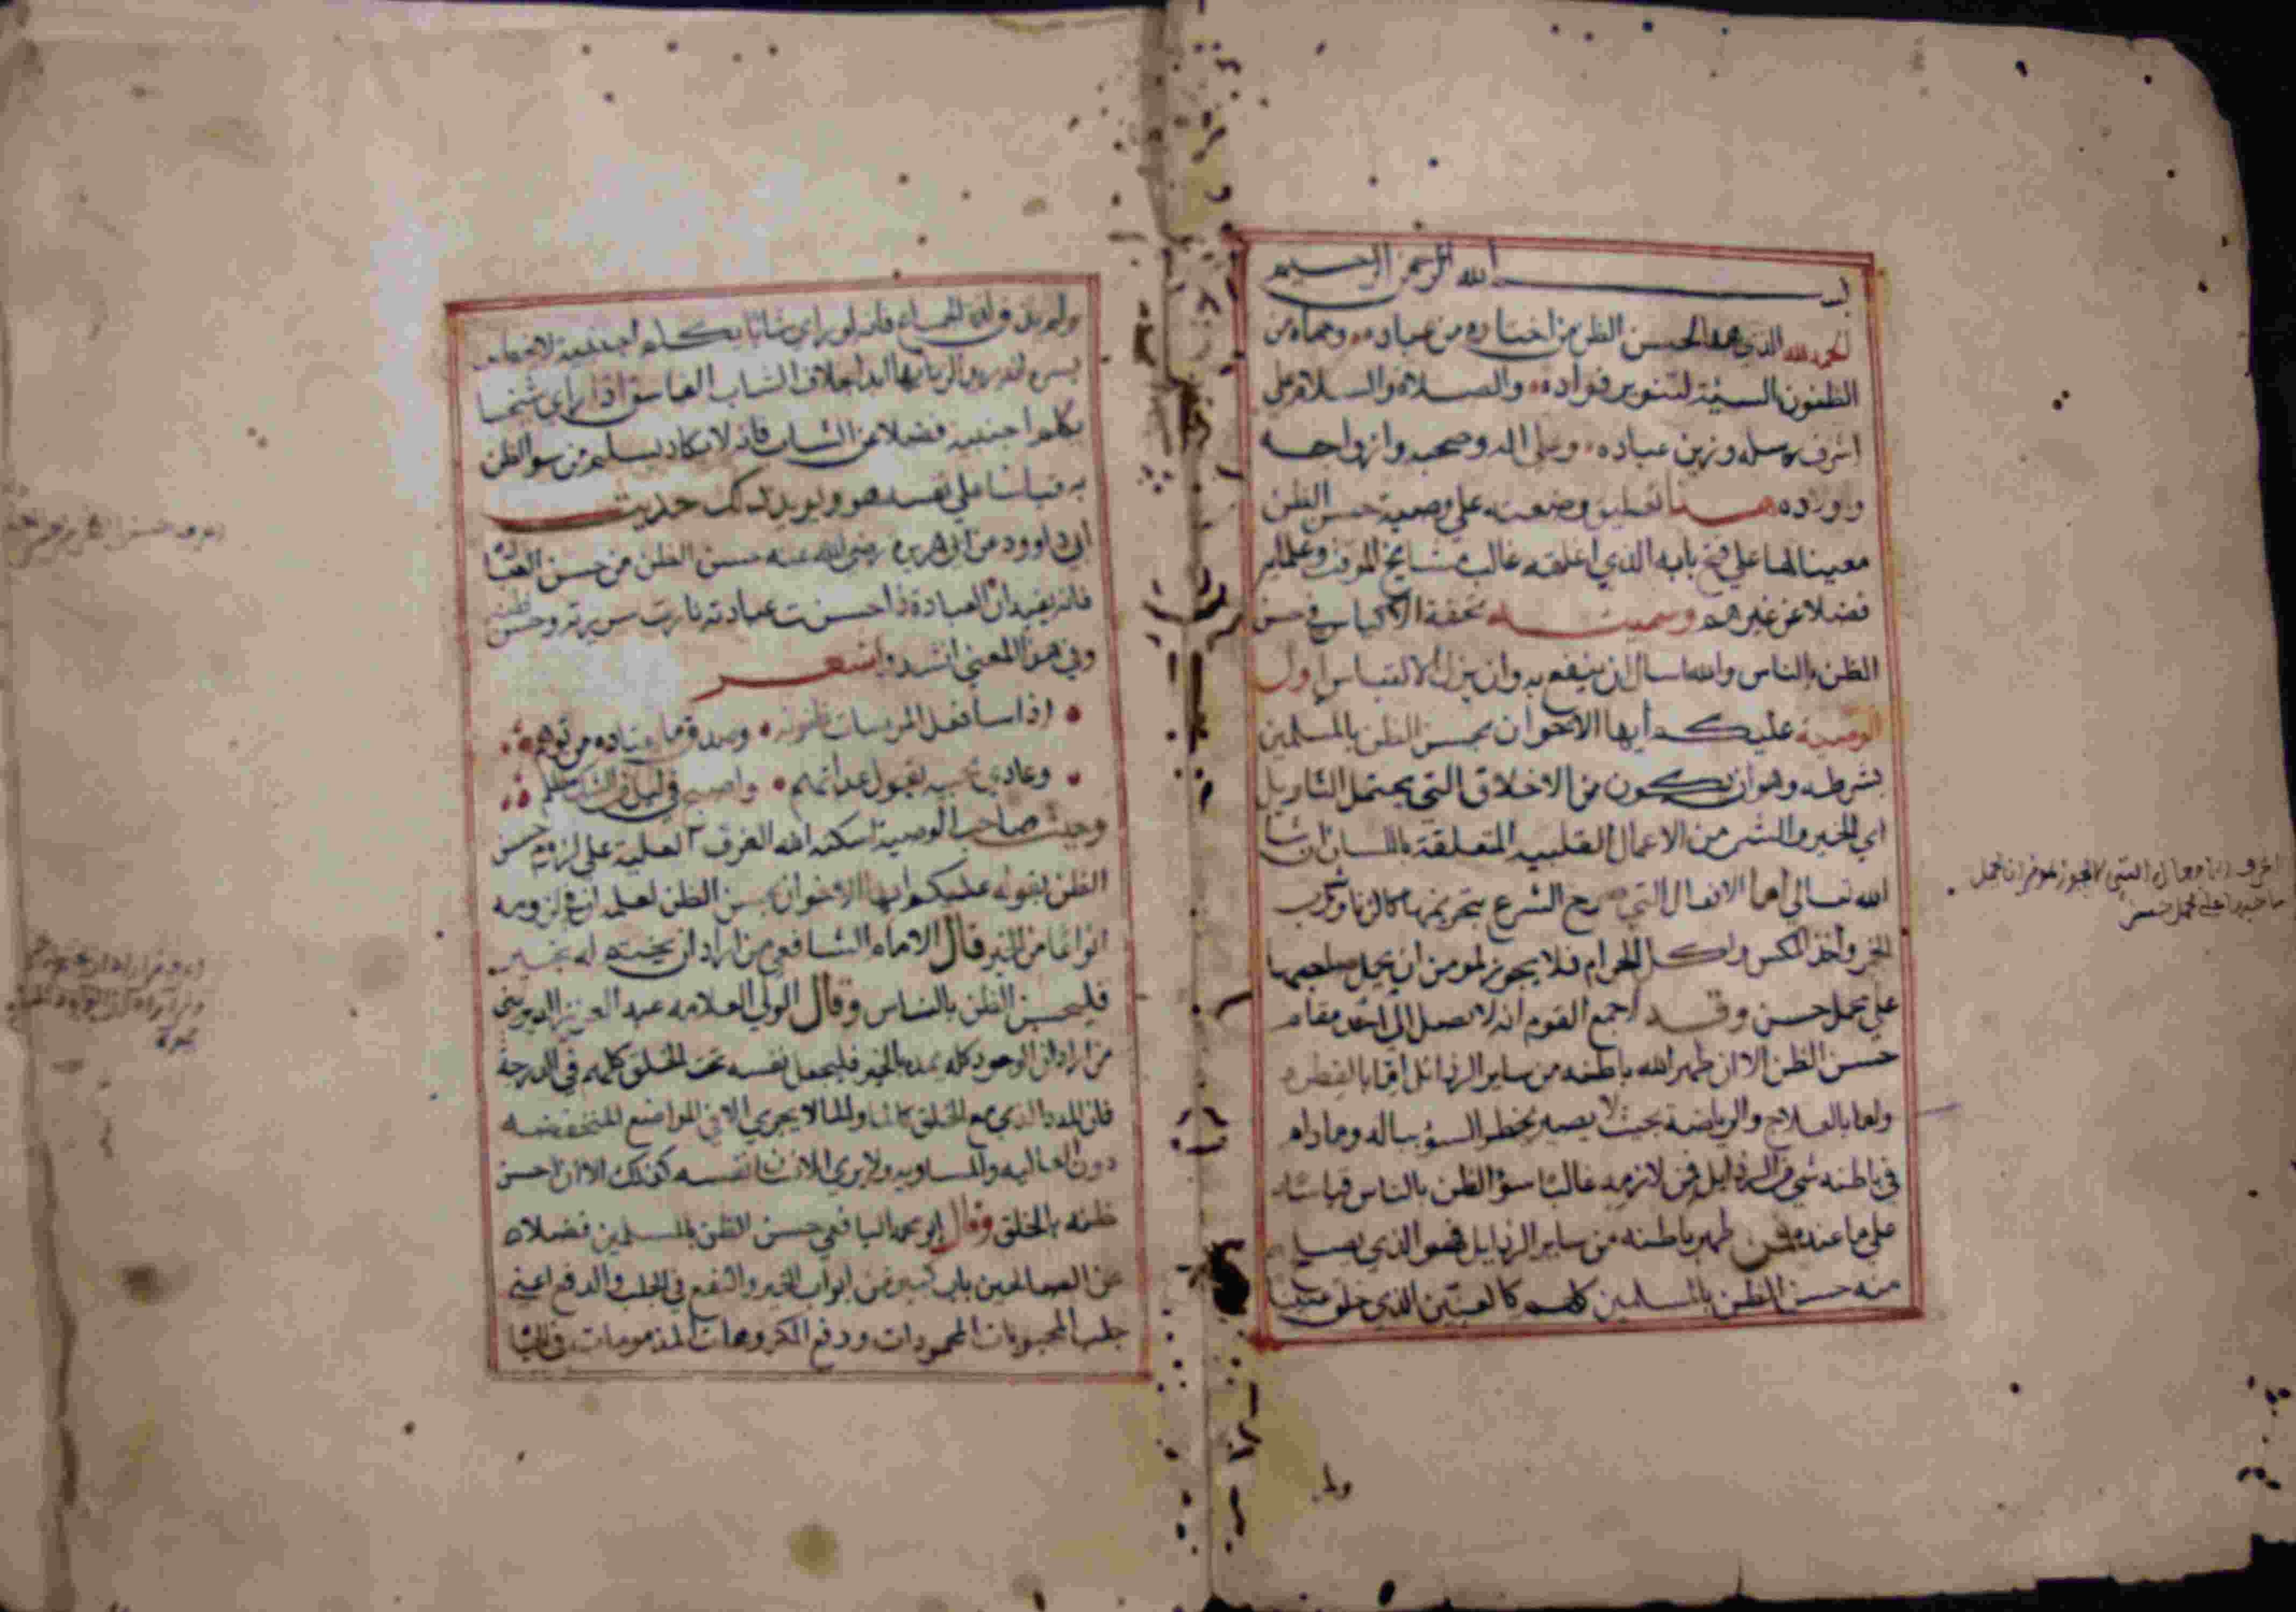 بسم الله الرحمن الرحيم
الحمد لله الذي حسن الظن من اختاره من عباده وحماه من
الظنون السيئة لتنوير فواده والصلاة والسلام على
اشرف رسله وزين عباده وعلى اله وصحبه وازواجه
واولاده هذا تعليق وضعته علي وصية حسن الظن
معينا لها علي فتح بابه الذي اغلقه غالب مشايخ الوقت وعلمايه
فضلا عن غيرهم وسميته تحفة الاكياس في حسن
الظن بالناس والله اسال ان ينفع به وان يزيل الالتباس اول
الوصية عليكم ايها الاخوان بحسن الظن بالمسلمين
بشرطه وهو ان تكون من الاخلاق التي يحتمل التاويل
اي الخير والشر من الاعمال القلبيه المتعلقة باللسان ان شا
الله تعالي اما الافعال التي صرح الشرع بتحريمها كالزنا وشرب
الخمر واخذ المكس واكل الحرام فلا يجوز لمومن ان يحمل صاحبها
علي محمل حسن وقد اجمع القوم انه لا يصل الي احد مقام
حسن الظن الا ان طهر الله باطنه من ساير الرذائل اما بالفطره
واما بالعلاج والرياضة بحيث لا يصير يخطر السؤ بباله وما دام
في باطنه شي من الرذايل فمن لازمه غالبا سؤ الظن بالناس قياسا
علي ما عنده فمن طهر باطنه من ساير الرذايل فهو الذي يصح
منه حسن الظن بالمسلمين كلهم كالعنين الذي خلق عنينا
ولم
ولم يذق لذة الجماع فانه لو راي شابا يكلم اجنبية لا
الزنا بها ابدا بخلاف الشاب الفاسق اذا راي شخصا
يكلم اجنبية فضلا عن الشاب فانه لا يكاد يسلم من سو الظن
به قياسا علي نفسه هو ويويد ذلك حديث
ابي داوود عن ابي هريره رضي الله عنه حسن الظن من حسن العباده
فانه يفيد ان العبادة اذا حسنت عبادته نارت سريرته وحسن ظنه
وفي هذا المعني انشدوا شعر
اذا سا فعل المر سات ظنونه وصدق ما يعتاده من توهم
وعادي محبيه بقول عداتهم واصبح في ليل من الشك مظلم
وحيث صاحب الوصية اسكنه الله الغرف العلية علي لزوم حسن
الظن بقوله عليكم ايها الاخوان بحسن الظن لعلمه ان في لزومه
انواعا من الخير قال الامام الشافعي من اراد ان يختم له بخير
فليحسن الظن بالناس وقال الولي العلامه عبد العزيز الديريني
من اراد ان الوجود كله يمده بالخير فليجعل نفسه تحت الخلق كلهم في الدرجة
فان المدد الذي مع الخلق كالما والما لا يجري الا في المواضع المنخفضه
دون العاليه والمساويه ولا يري الانسان نفسه كذلك الا ان احسن
ظنه بالخلق وقال ابو محمد اليافعي حسن الظن بالمسلمين فضلا
عن الصالحين باب كبير من ابواب الخير والنفع في الجلب والدفع اعني
جلب المحبوبات المحمودات ودفع المكروهات المذمومات